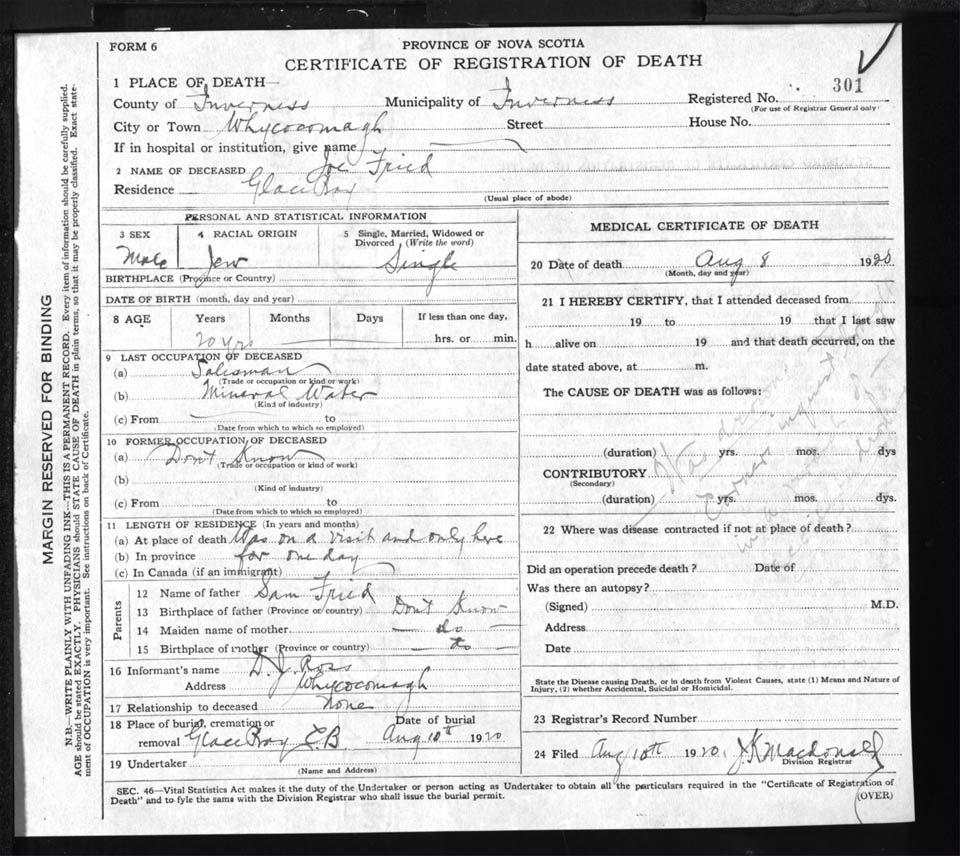 FORM 6
PROVINCE OF NOVA SCOTIA
CERTIFICATE OF REGISTRATION OF DEATH
1 PLACE OF DEATH—
County of Inverness Municipality of Inverness Registered No. 301
(For use of Registrar General only)
City or Town Whycocomagh Street House No.
If in hospital or institution, give name
2 NAME OF DECEASED Joe Fried
Residence Glace Bay
(Usual place of abode)
PERSONAL AND STATISTICAL INFORMATION
3 SEX 4 RACIAL ORIGIN 5 Single, Married, Widowed or Divorced (Write the word)
Male Jew Single
BIRTHPLACE (Province or Country)
DATE OF BIRTH (month, day and year)
8 AGE Years Months Days If less than one day,
20 yrs hrs. or min.
9 LAST OCCUPATION OF DECEASED
(a) Salesman
(Trade or occupation or kind or work)
(b) Mineral Water
(Kind of industry)
(c) From to
(Date from which to which so employed)
10 FORMER OCCUPATION OF DECEASED
(a) Don't Know
(Trade or occupation or kind of work)
(b)
(Kind of industry)
(c) From to
(Date from which to which so employed)
11 LENGTH OF RESIDENCE (In years and months)
(a) At place of death Was on a visit and only here
(b) In province for one day
(c) In Canada (if an immigrant)
Parents
12 Name of father Sam Fried
13 Birthplace of father (Province or country) Dont Know
14 Maiden name of mother — do —
15 Birthplace of mother (Province or country) — do —
16 Informant's name D. J. Ross
Address Whycocomagh
17 Relationship to deceased None
18 Place of burial, cremation or removal Glace Bay C.B. Date of burial Aug 10th 1920
19 Undertaker
(Name and Address)
MEDICAL CERTIFICATE OF DEATH
20 Date of death Aug 8 1920
(Month, day and year)
21 I HEREBY CERTIFY, that I attended deceased from
19 to 19 that I last saw
h alive on 19 and that death occurred, on the
date stated above, at m.
The CAUSE OF DEATH was as follows:
(duration) yrs. mos. dys
CONTRIBUTORY
(Secondary)
(duration) yrs. mos. dys.
Was
inquest
22 Where was disease contracted if not at place of death?
Did an operation precede death? Date of
Was there an autopsy?
(Signed) M.D.
Address
Date
State the Disease causing Death, or in death from Violent Causes, state (1) Means and Nature of
Injury, (2) whether Accidental, Suicidal or Homicidal.
23 Registrar's Record Number
24 Filed Aug 10th 1920. J K Macdonald
Division Registrar
SEC. 46—Vital Statistics Act makes it the duty of the Undertaker or person acting as Undertaker to obtain all the particulars required in the "Certificate of Registration of
Death" and to fyle the same with the Division Registrar who shall issue the burial permit.
(OVER)
MARGIN RESERVED FOR BINDING
N.B.—WRITE PLAINLY WITH UNFADING INK—THIS IS A PERMANENT RECORD. Every item of information should be carefully supplied.
AGE should be stated EXACTLY. PHYSICIANS should STATE CAUSE OF DEATH in plain terms, so that it may be properly classified. Exact state-
ment of OCCUPATION is very important. See instructions on back of Certificate.